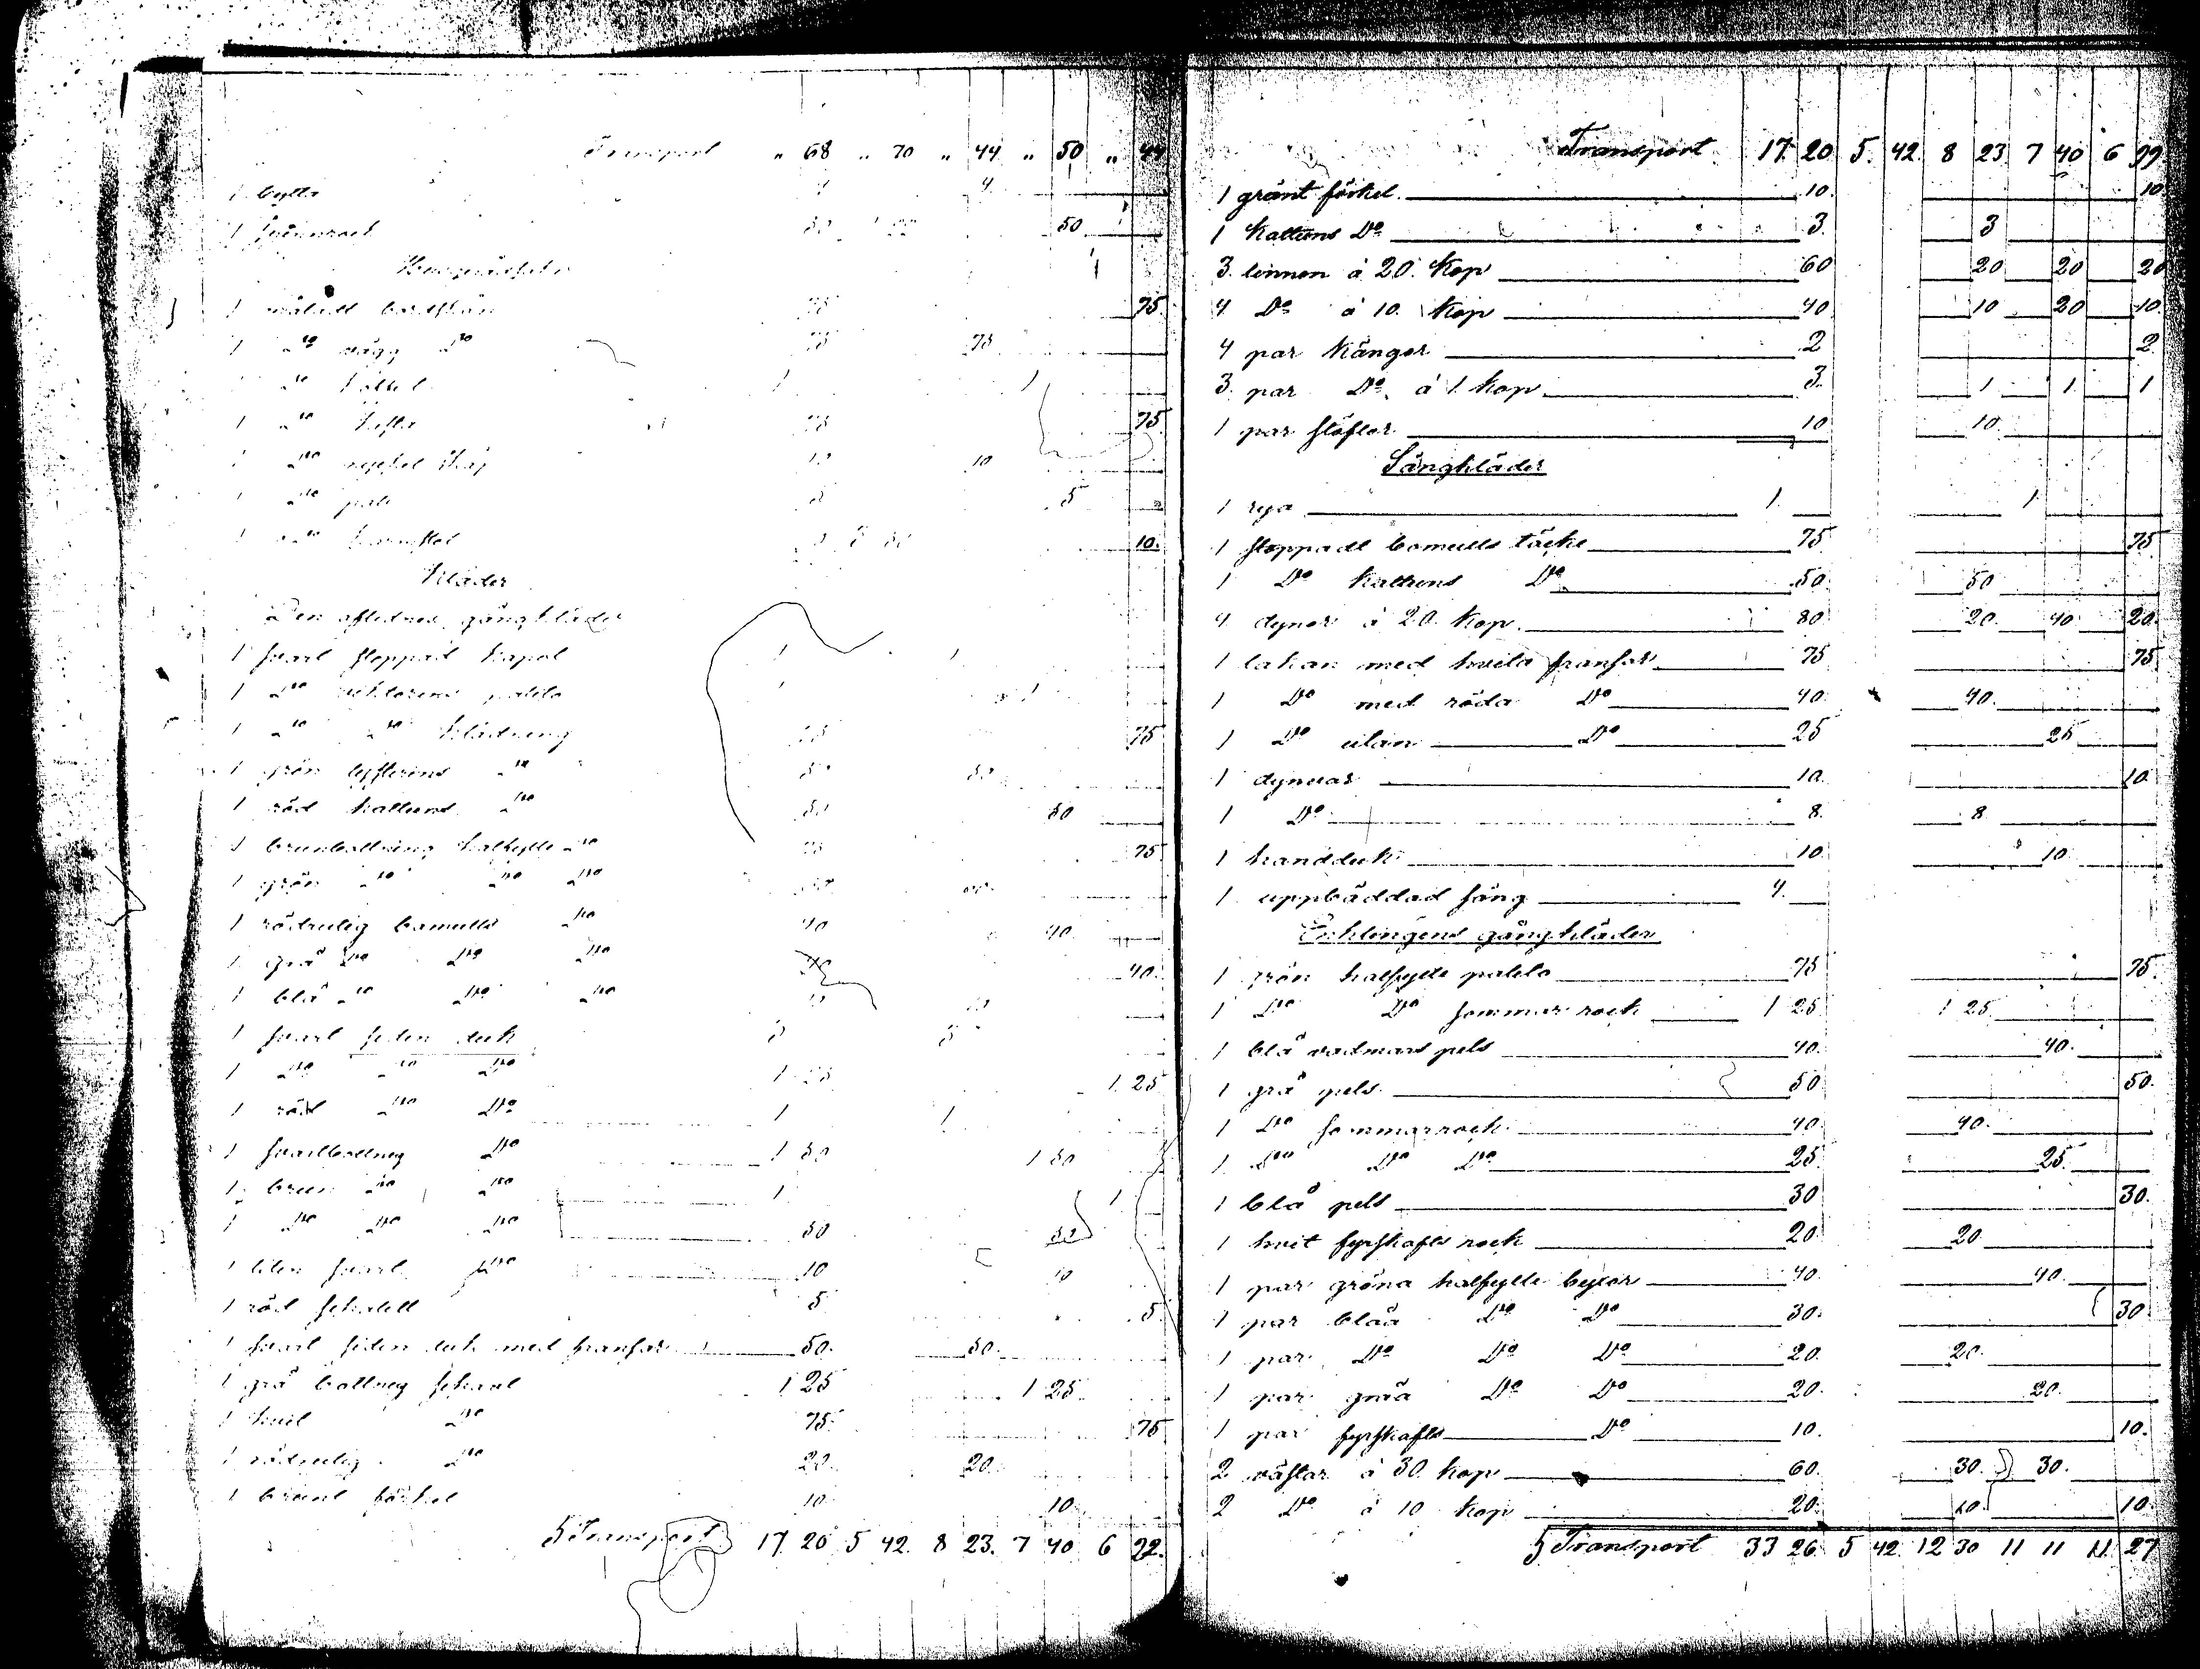 Transport " 68 " 70 " 44 " 50 " 44
1 bytta 4 4
1 spinnrock 50 50
1 måladt bordskån 75 75
1 Do vägg Do 75 75
1 Do 1 1
1 Do kista 75 75
1 Do nyckel skåp 10 10
1 Do 5 5
1 Do 10.
Kläder
Den aflednes gångkläder
1 svart stoppad kapot 1 1
1 Do paleto 1 1
1 Do Do klädning 75 75
1 grön Do 50 50
1 röd kattuns Do 50 50
1 brunbottning halfylle Do 75 75
1 grön Do Do Do
1 rödrutig bomulls Do 40 40.
1 grå Do Do Do 40 40.
1 blå Do Do Do 10 10
1 svart siden duk 5 5
1 Do Do Do 1 25 1 25
1 röd Do Do 1 1
1 svartbottnig Do 1 50 1 50
1 brun Do Do 1 1
1 Do Do Do 50 50
1 liten svart Do 10 10
1 röd schalett 5 5
1 svart siden duk med fransar 50. 50.
1 grå bottnig schavl 1 25 1 25
1 hvit Do 75 75
1 rödrutig Do 20 20.
1 brunt förkel 10 10.
Transport 17 20 5 42 8 23. 7 40 6 22.
Transport 17 20 5 42 8 23 7 40 6 22
1 grönt förkel 10. 10
1 Kattuns Do 3. 3
3 linnen á 20 Kop 60 20 20 20
4 Do á 10 Kop 40 10 20 10.
4 par Kängor 2 2.
3 par Do á 1 Kop 3. 1 1 1
1 par stöflor 10 10.
Sängkläder
1 rya 1. 1
1 stoppadt bomulls täcke 75 75
1 Do Kattuns Do 50 50
4 dynor á 20 Kop. 80 20 40 20.
1 lakan med hvita fransar 75 75
1 Do med röda Do 40 40.
1 Do utan Do 25 25
1 dynvar 10. 10
1 Do 8. 8
1 handduk 10. 10
1 uppbäddad säng 4.
Enklingens gångkläder
1 grön halfylle paleto 75 75.
1 Do Do sommar rock 1 25 1 25.
1 blå vadmars pels 40. 40.
1 grå pels 50 50.
1 Do sommarrock 40. 40.
1 Do Do Do 25 25.
1 blå pels 30 30.
1 hvit fyrskafts rock 20. 20
1 par gröna halfylle byxor 40. 40.
1 par blåa Do Do 30. 30
1 par Do Do Do 20. 20.
1 par gråa Do Do 20. 20.
1 par fyrskafts Do 10. 10.
2 västar á 30 kop 60. 30. 30.
2 Do á 10 Kop 20. 10. 10.
Transport 33 26 5 42 12 30 11 11 11 27